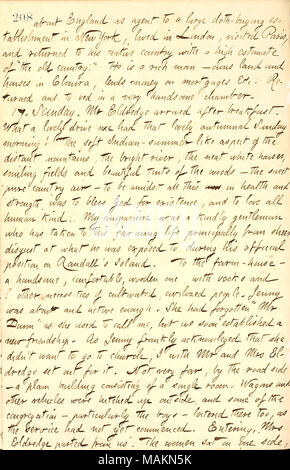 208
about England as agent to a large cloth-buying es-
tablishment in New York, lived in London, visited Paris,
and returned to his native country with a high estimate
of "the old country." He is a rich man – owns land and
houses in Elmira, lends money on mortgages &c. Re-
turned and to bed in a very handsome chamber.
17. Sunday. Mr Eldredge arrived after breakfast.
What a lovely drive we had that lovely autumnal Sunday
morning! The soft Indian-summer like aspect of the
distant mountains, the bright river, the neat white houses,
smiling fields and beautiful tints of the woods – the sweet
pure country air – to be amidst all this in health and
strength was to bless God for existence, and to love all
human kind. My companion was a kindly gentleman
who has taken to this farming life principally from sheer
disgust at what he was exposed to during his official
position on Randall's Island. To the farm-house –
a handsome, comfortable, wooden one, with books and
other necessities of cultivated civilized people. Jenny
was about and active enough. She had forgotten Mr
Gunn as she used to call me, but we soon established a
new friendship. As Jenny frankly acknowledged that she
didn't want to go to church, I with Mr and Mrs El-
dredge set out for it. Not very far, by the road side
– a plain building consisting of a single room. Wagons and
other vehicles were hitched up outside and some of the
congregation – particularly the boys – loitered there too, as
the service had not yet commenced. Entering, Mrs
Eldredge parted from us. The women sat on one side,
alamy
Image ID: MAKN5K
www.alamy.com